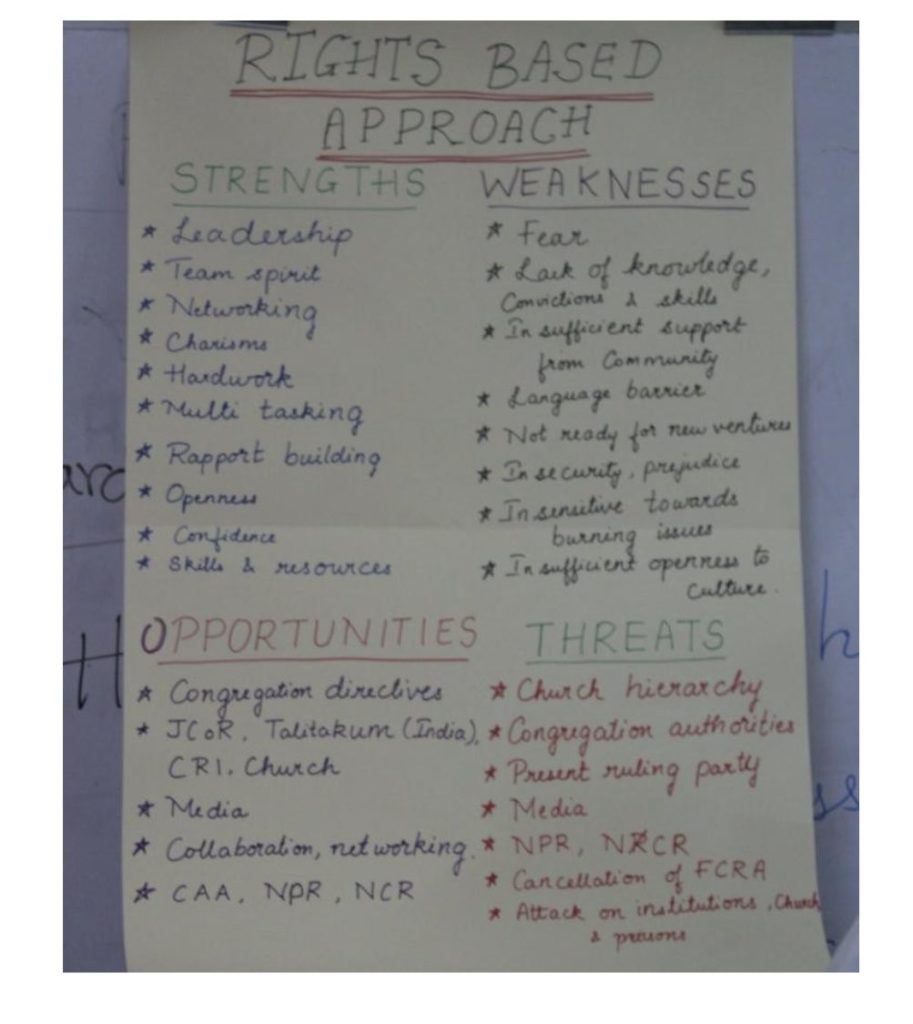 RIGHTS BASED
APPROACH
STRENGTHS
* Leadership
* Team spirit
* Networking
* Charisms
* Hardwork
* Multi tasking
* Rapport building
* Openness
* Confidence
* Skills & resources
WEAKNESSES
* Fear
* Lack of knowledge,
Convictions & skills
* In sufficient support
from Community
* Language barrier
* Not ready for new ventures
* In security, prejudice
* In sensitive towards
burning issues
* In sufficient openness to
Culture.
OPPORTUNITIES
* Congregation directives
* JCoR, Talitakum (India),
CRI. Church
* Media
* Collaboration, networking.
* CAA, NPR, NCR
THREATS
* Church hierarchy
* Congregation authorities
* Present ruling party
* Media
* NPR, NRCR
* Cancellation of FCRA
* Attack on institutions, Church
& persons